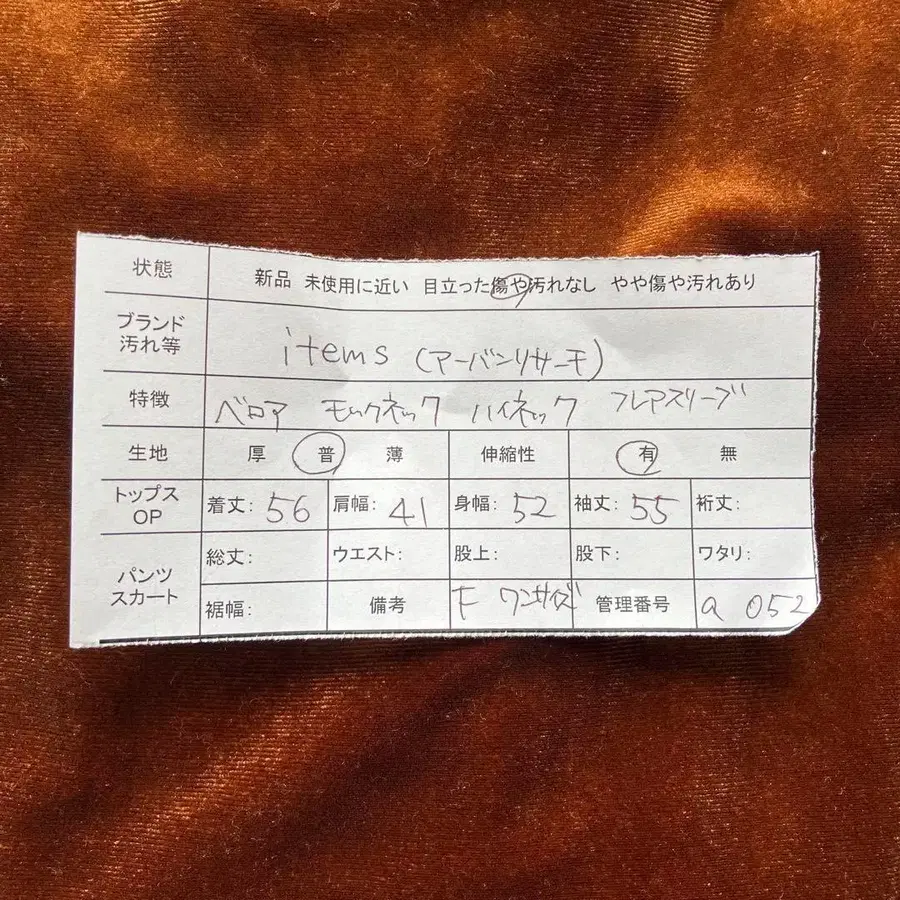 状態 新品 未使用に近い 目立った傷や汚れなし やや傷や汚れあり
ブランド
汚れ等 items (アーバンリサーモ)
特徴 ベロア モックネック ハイネック フレアスリーブ
生地 厚 普 薄 伸縮性 有 無
トップス
OP 着丈: 56 肩幅: 41 身幅: 52 袖丈: 55 裄丈:
パンツ
スカート 総丈: ウエスト: 股上: 股下: ワタリ:
裾幅: 備考 F ワンサイズ 管理番号 a 052